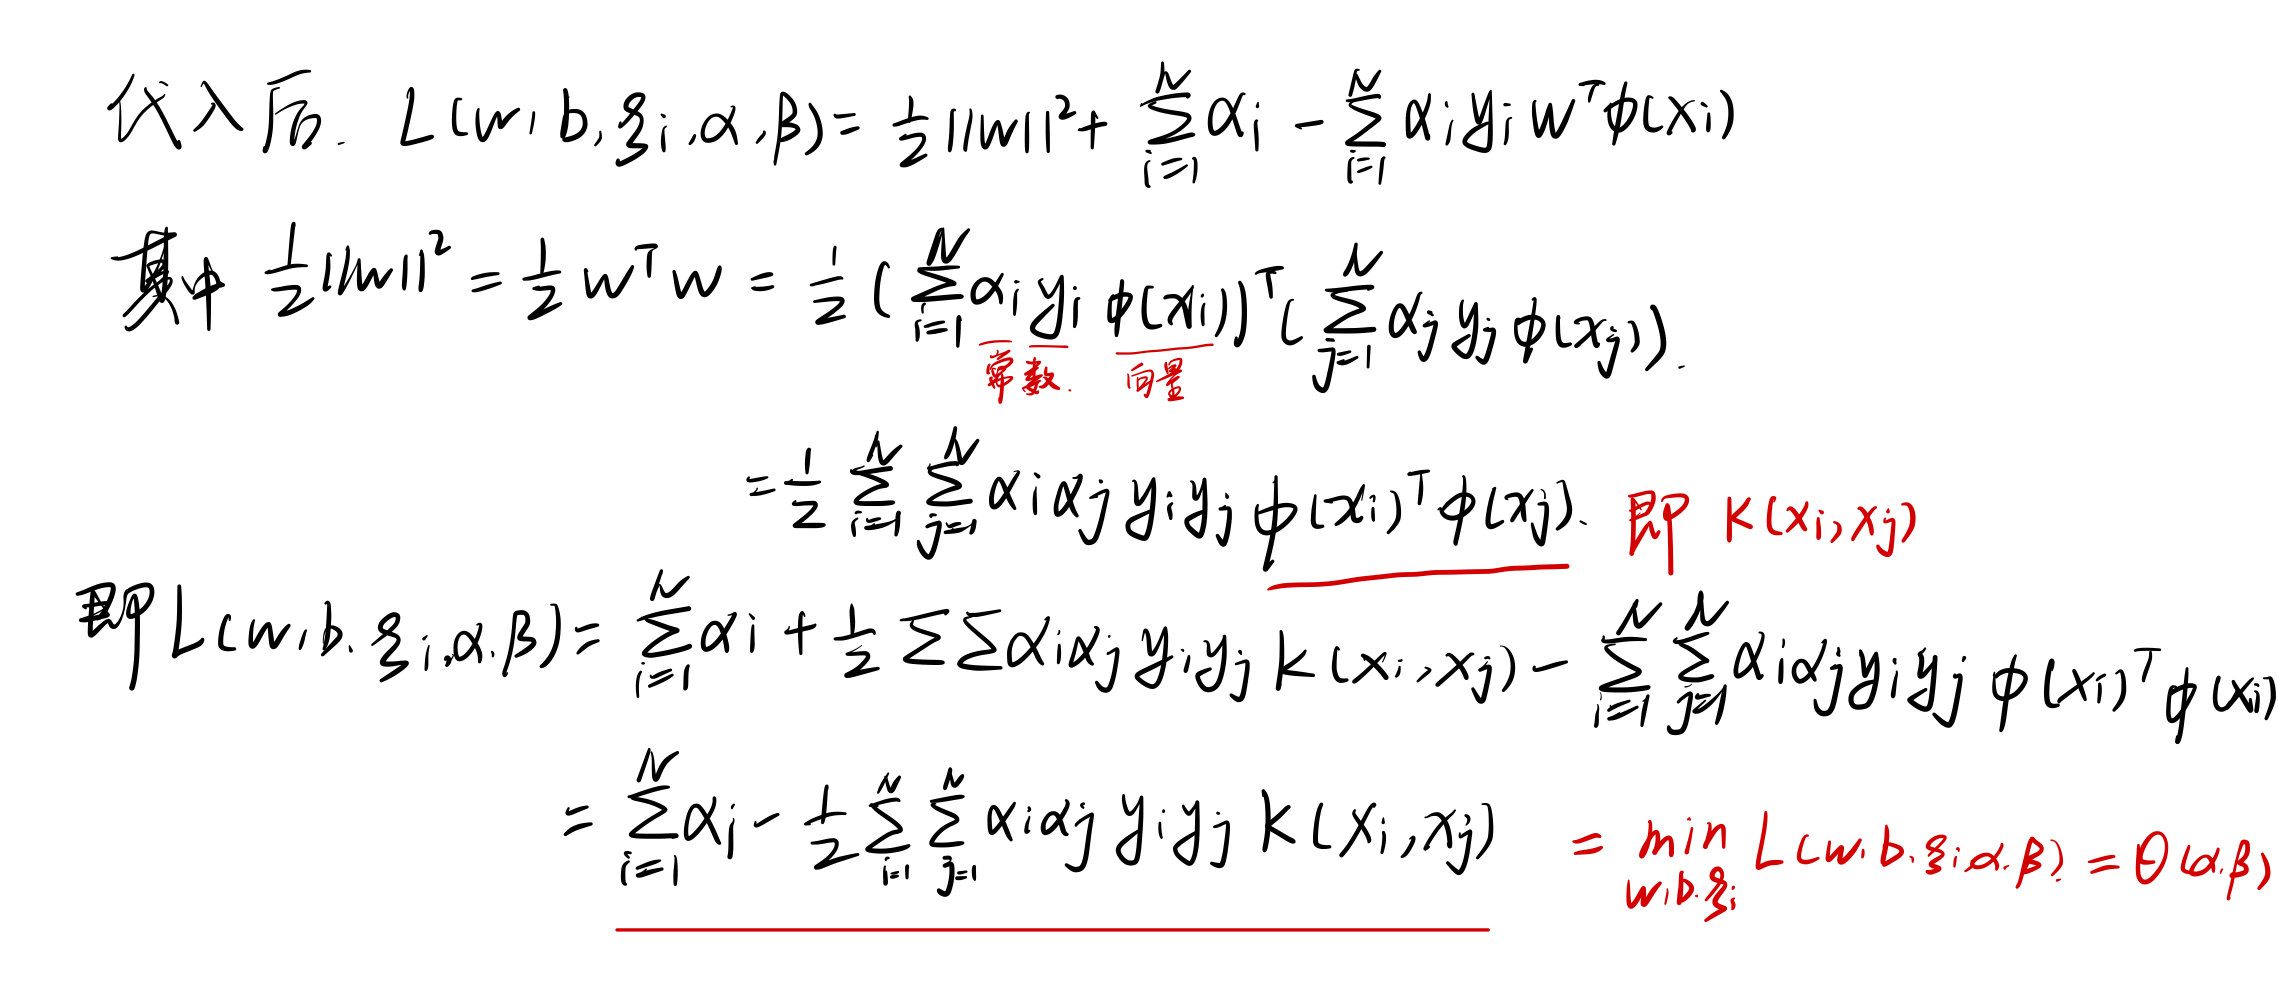 代入后. L(w, b, ξi, α, β) = 1/2 ||w||² + Σ_{i=1}^{N} αi − Σ_{i=1}^{N} αi yi wᵀφ(xi)
其中 1/2 ||w||² = 1/2 wᵀw = 1/2 (Σ_{i=1}^{N} αi yi φ(xi))ᵀ(Σ_{j=1}^{N} αj yj φ(xj)).
常数. 向量
= 1/2 Σ_{i=1}^{N} Σ_{j=1}^{N} αi αj yi yj φ(xi)ᵀ φ(xj). 即 K(xi, xj)
即 L(w, b. ξi, α. β) = Σ_{i=1}^{N} αi + 1/2 ΣΣ αi αj yi yj K(xi, xj) − Σ_{i=1}^{N} Σ_{j=1}^{N} αi αj yi yj φ(xi)ᵀ φ(xi)
= Σ_{i=1}^{N} αi − 1/2 Σ_{i=1}^{N} Σ_{j=1}^{N} αi αj yi yj K(xi, xj) = min_{w, b. ξi} L(w, b. ξi, α. β). = θ(α. β)